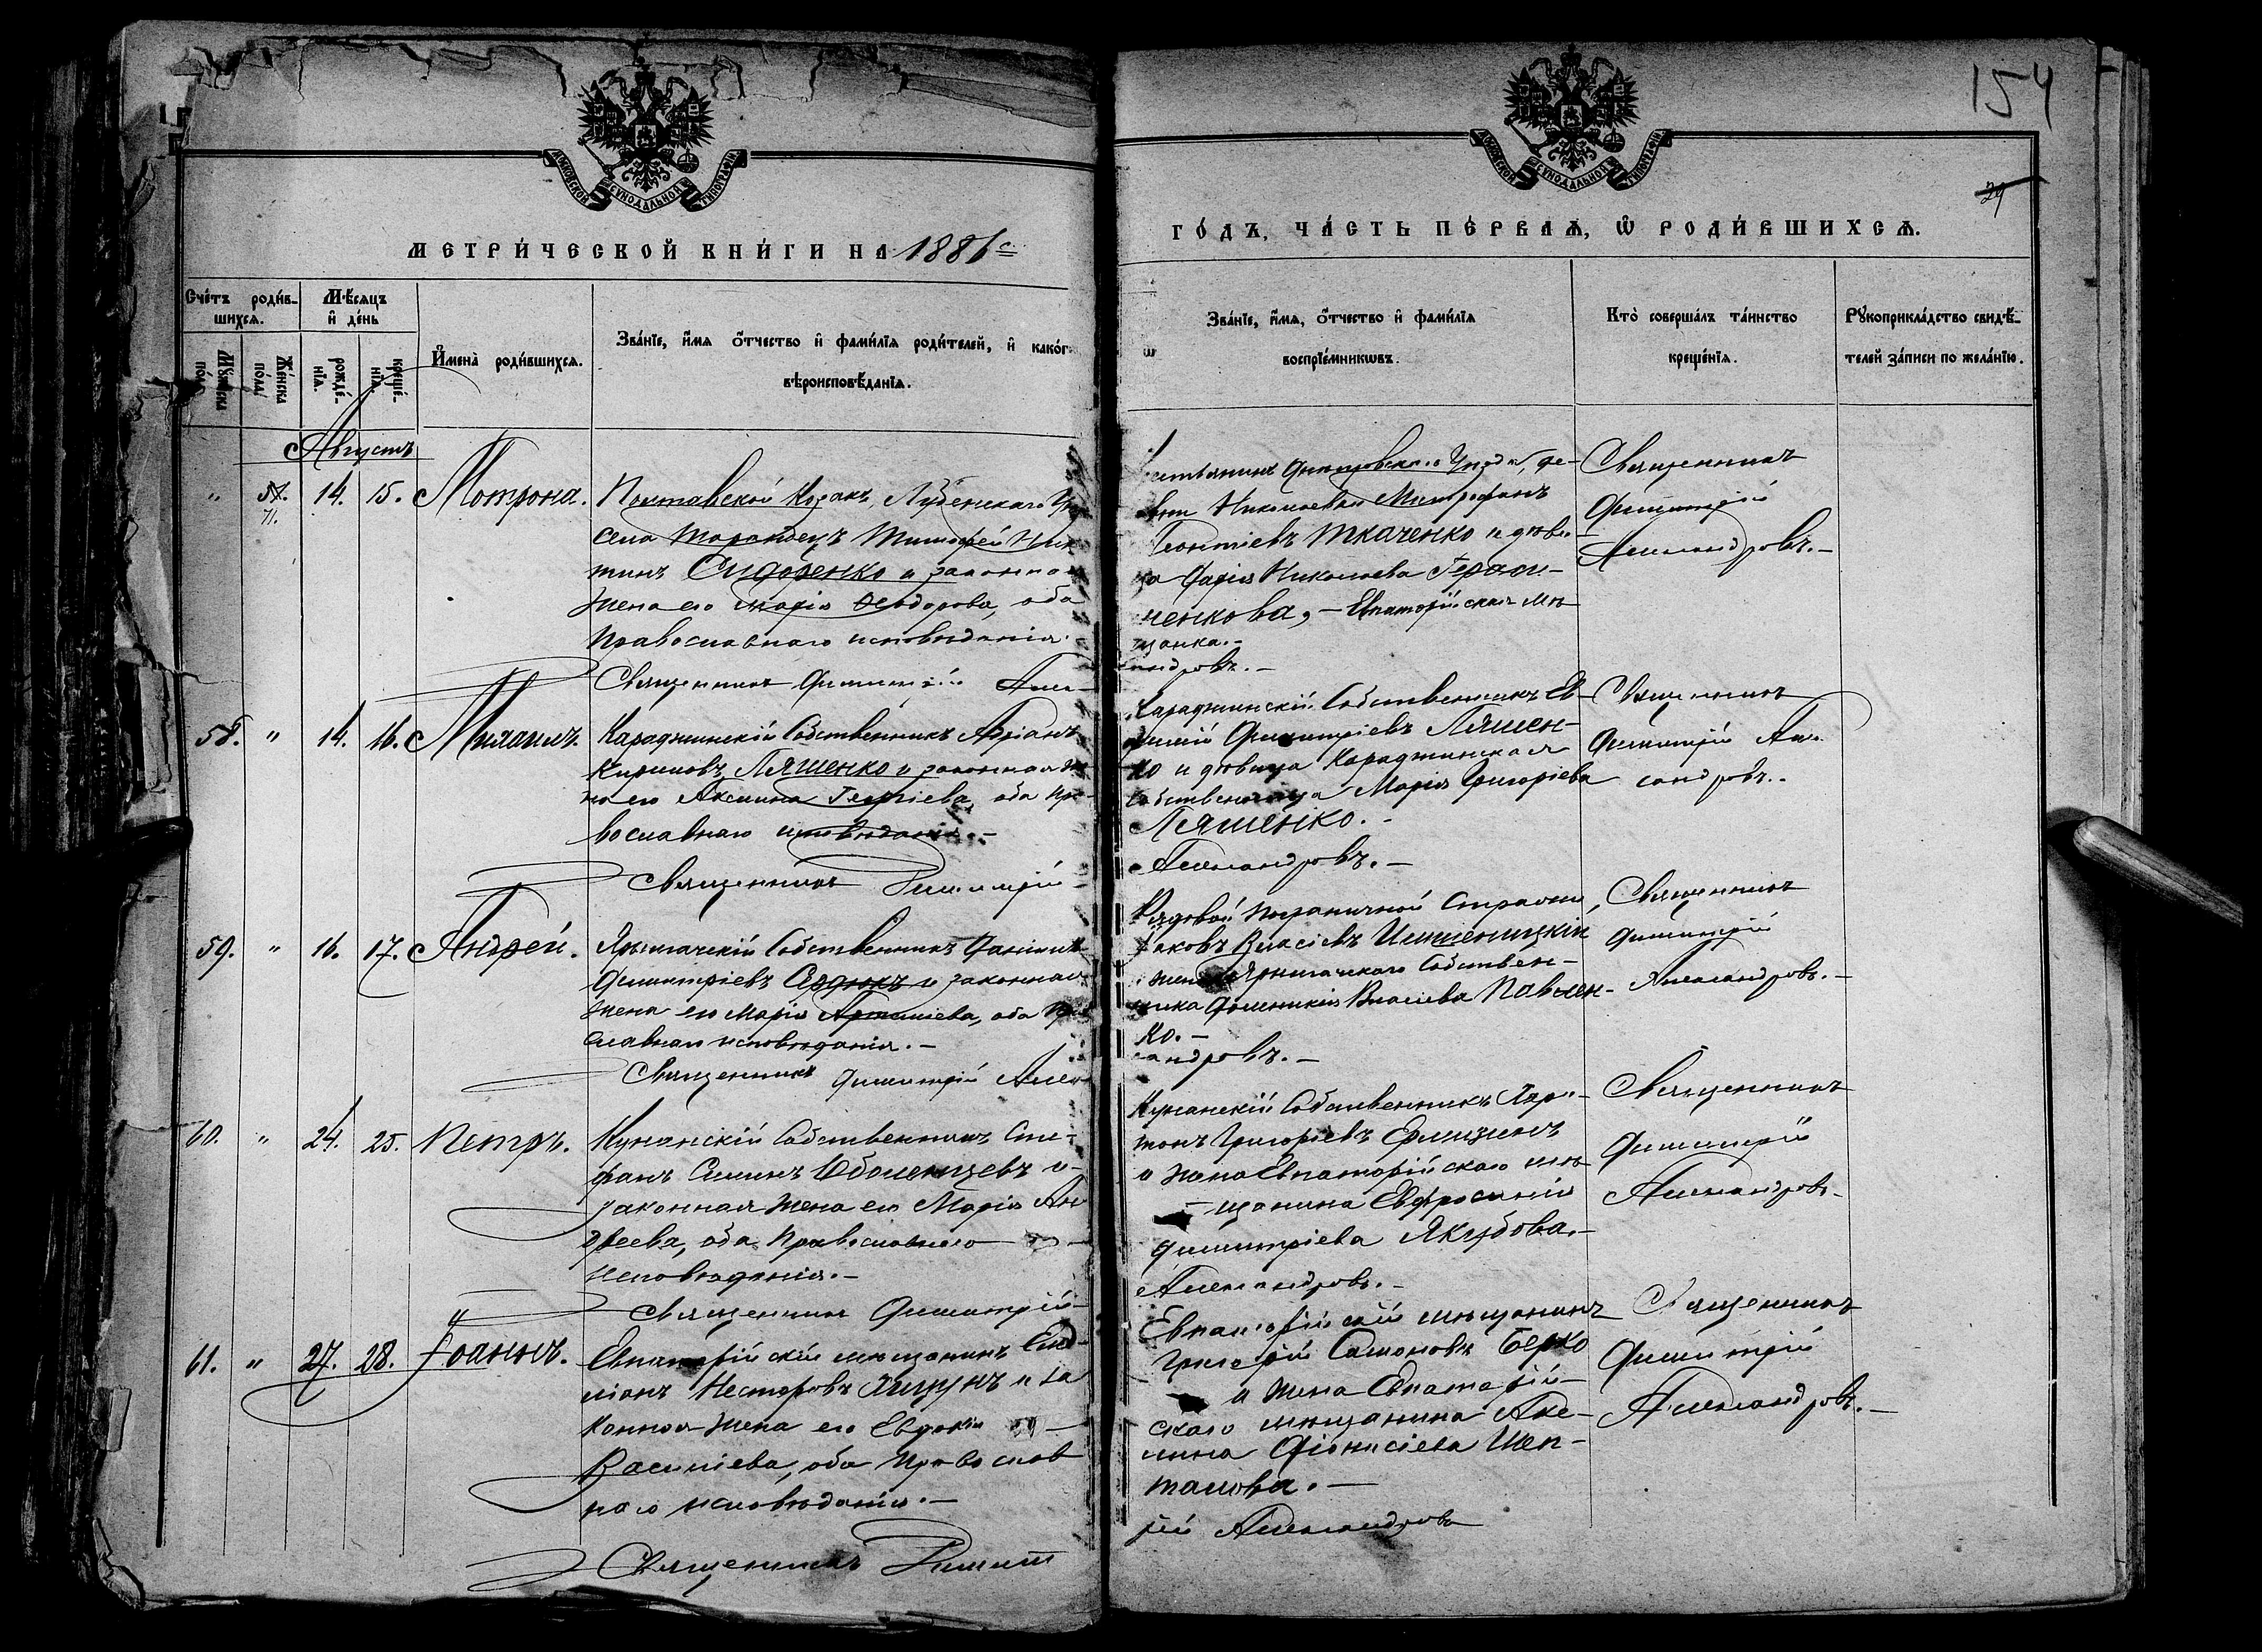 154
29
МОСКОВСКОЙ СѴНОДАЛЬНОЙ ТИПОГРАФІИ
МОСКОВСКОЙ СѴНОДАЛЬНОЙ ТИПОГРАФІИ
МЕТРИ́ЧЕСКОЙ КНИ́ГИ НА 1886 с.
ГО́ДЪ, ЧА́СТЬ ПЕ́РВАѦ, Ѽ РОДИ́ВШИХСѦ.
Сче́тъ роди́в-
шихсѧ.
Мꙋ́жеска по́ла
Же́нска по́ла
Мѣ́сѧцъ
и҆ де́нь
рожде́-
нїѧ.
креще́-
нїѧ.
И҆мена̀ роди́вшихсѧ.
Зва́нїе, и҆́мѧ ѻ҆́тчество и҆ фами́лїѧ роди́телей, и҆ како́г
вѣроисповѣ́данїѧ.
Зва́нїе, и҆́мѧ, ѻ҆́тчество и҆ фами́лїѧ
воспрїе́мникѡвъ.
Кто̀ соверша́лъ та́инство
креще́нїѧ.
Рꙋкоприкла́дство свидѣ́-
телей за́писи по жела́нїю.
Августъ
" 57. 14. 15. Мотрона.
71.
Полтавской Козакъ, Лубенскаго Уѣ
села Тарандецъ Тимофей Ники
тинъ Сидоренко и законная
жена его Марія Ѳеодорова, оба
Православнаго исповѣданія.
Священникъ Димитрій Алек
стьянинъ Днѣпровскаго Уѣзда, де-
вни Николаевки Митрофанъ
Леонтіевъ Ткаченко и дѣви-
ца Дарія Николаева Гераси-
ченкова, - Евпаторійская мѣ
щанка.-
андровъ.-
Священникъ
Димитрій
Александровъ.-
58. " 14. 16.
Караджинскій Собственникъ Адріанъ
Кириловъ Ляшенко и законная же
на его Аксинія Георгіева, оба Пра-
вославнаго исповѣданія.-
Священникъ Димитрій
Караджинскій Собственникъ Ев-
Димитріевъ Ляшен-
ко и дѣвица Караджинская
собственница Марія Григоріева
Ляшенко.-
Александровъ.-
Священникъ
Димитрій Алек-
сандровъ.-
59. " 16. 17. Андрей.
Ярылгачскій Собственникъ Даніилъ
Димитріевъ Сердюкъ и законная
жена его Марія оба Пра
славнаго исповѣданія.-
Священникъ Димитрій Алек
Рядовой пограничной Стражи,
Іаковъ Власіевъ
и жена Ярылгачскаго Собствен-
ника Доминикія Власіева Павлен-
ко.-
сандровъ.-
Священникъ
Димитрій
Александровъ.-
60. " 24. 25. Петръ.
Кунанскій Собственникъ Сте-
фанъ Оболенцевъ и
законная жена его Марія Ан
дреева, оба Православнаго
исповѣданія.-
Священникъ Димитрій
Кунанскій Собственникъ Хари-
тонъ Григоріевъ
и жена Евпаторійскаго мѣ
-щанина Евфросинія
Димитріева Якубова.-
Александровъ.-
Священникъ
Димитрій
Александровъ.-
61. " 27. 28. Іоаннъ.
Евпаторійскій мѣщанинъ Еми-
ліанъ Несторовъ и за
конная жена его Евдокія
Василіева, оба Православ
наго исповѣданія.-
Священникъ Димит
Евпаторійскій мѣщанинъ
Григорій Берко
и жена Евпаторій-
скаго мѣщанина Аке-
лина Діонисіева Шеп-
талова.-
рій Александровъ
Священникъ
Димитрій
Александровъ.-